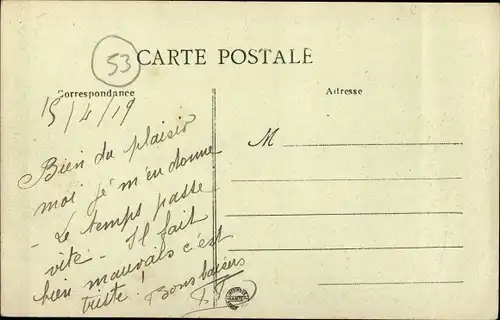 53
CARTE POSTALE
Correspondance
Adresse
15/4/19
M
Bien du plaisir
moi je m'en donne
- Le temps passe
vite - Il fait
bien mauvais c'est
triste! Bons baisers